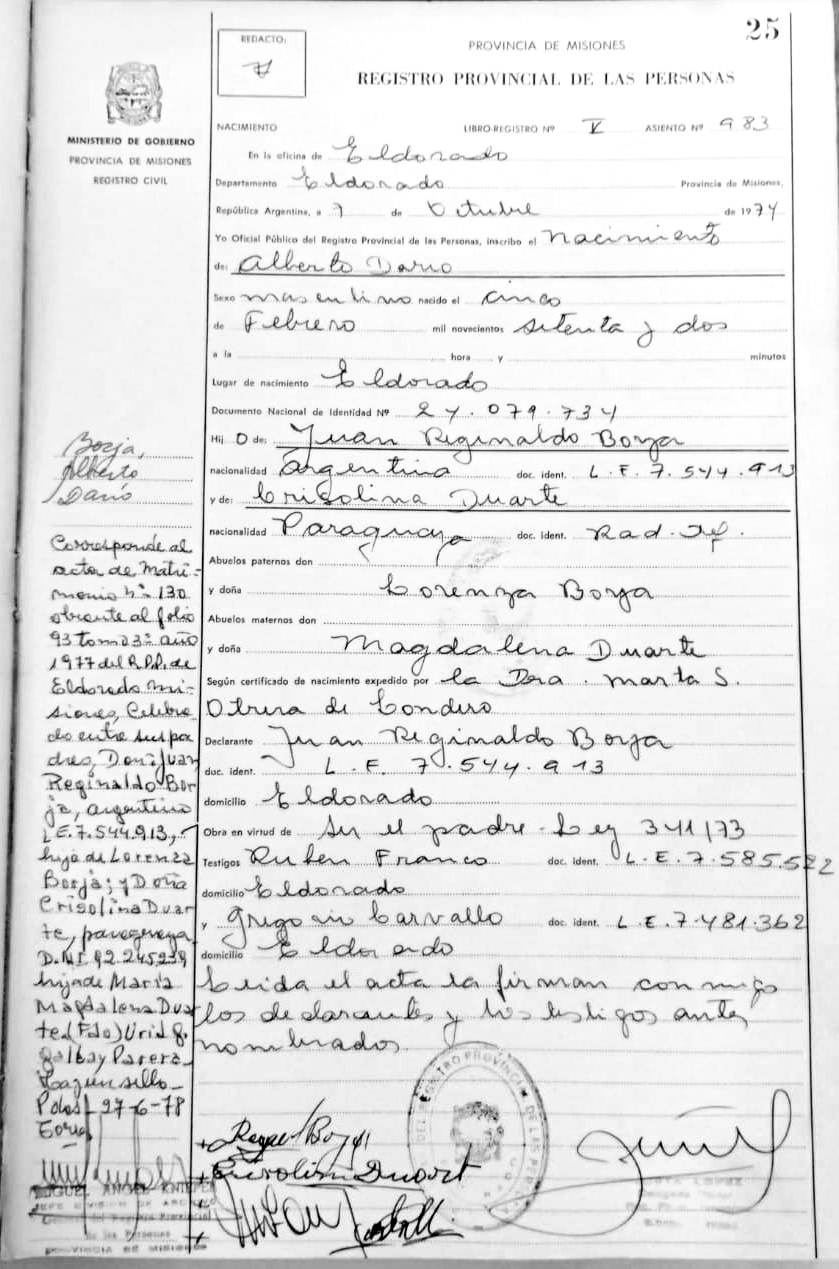 25
REDACTO:
PROVINCIA DE MISIONES
REGISTRO PROVINCIAL DE LAS PERSONAS
MINISTERIO DE GOBIERNO
PROVINCIA DE MISIONES
REGISTRO CIVIL
NACIMIENTO LIBRO-REGISTRO Nº V ASIENTO Nº 983
En la oficina de Eldorado
Departamento Eldorado Provincia de Misiones,
República Argentina, a 7 de Octubre de 1974
Yo Oficial Público del Registro Provincial de las Personas, inscribo el Nacimiento
de: Alberto Dario
Sexo masculino nacido el cinco
de Febrero mil novecientos setenta y dos
a la hora y minutos
Lugar de nacimiento Eldorado
Documento Nacional de Identidad Nº 24.079.734
Hij o de: Juan Reginaldo Borja
nacionalidad Argentina doc. ident. L.E. 7.544.913
y de: Crisolina Duarte
nacionalidad Paraguaya doc. ident. Rad.
Abuelos paternos don
y doña Lorenza Borja
Abuelos maternos don
y doña Magdalena Duarte
Según certificado de nacimiento expedido por la Dra. Marta S.
de
Declarante Juan Reginaldo Borja
doc. ident. L.E. 7.544.913
domicilio Eldorado
Obra en virtud de ser el padre - Ley 341/73
Testigos Ruben Franco doc. ident. L.E. 7.585.522
domicilio Eldorado
y Gregorio Carvallo doc. ident. L.E. 7.481.362
domicilio Eldorado
Leida el acta la firman conmigo
los declarantes y los testigos antes
nombrados
Borja,
Alberto
Dario
Corresponde al
acta de Matri-
monio nº 130
obrante al folio
93 tomo 3º año
1977 del R.P.P. de
Eldorado Mi-
siones, Celebra
do entre sus pa
dres, Don Juan
Reginaldo Bor
ja, argentino
L.E. 7.544.913,
hijo de Lorenza
Borja; y Doña
Crisolina Duar
te, paraguaya
D.N.I. 92.245239
hija de Maria
Magdalena Duar
te (Fdo)
Posadas 27-6-78
DEL REGISTRO PROVINCIAL DE LAS PERSONAS
MIGUEL ANGEL
JEFE DIVISION DE ARCHIVO
del Registro Provincial
de las Personas
PROVINCIA DE MISIONES
LOPEZ